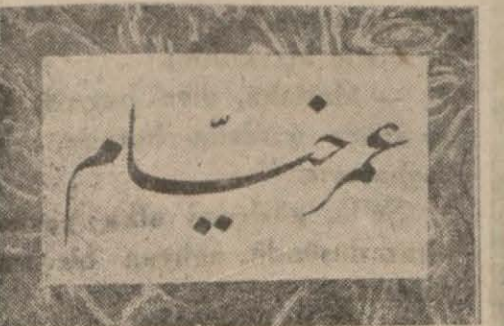 عمر خیّام